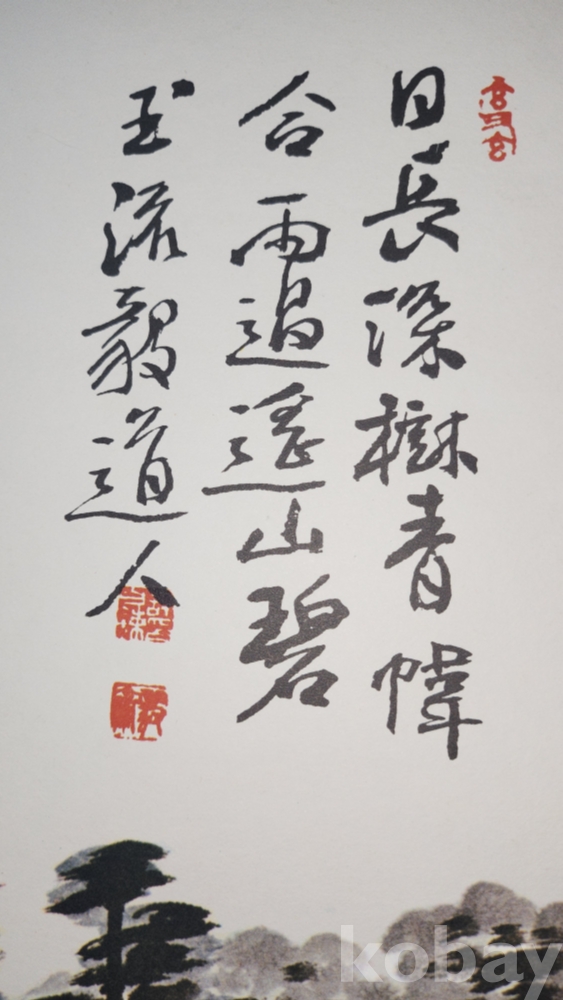 日長深樹青幃
合雨過遙山碧
玉流毅道人
kobay